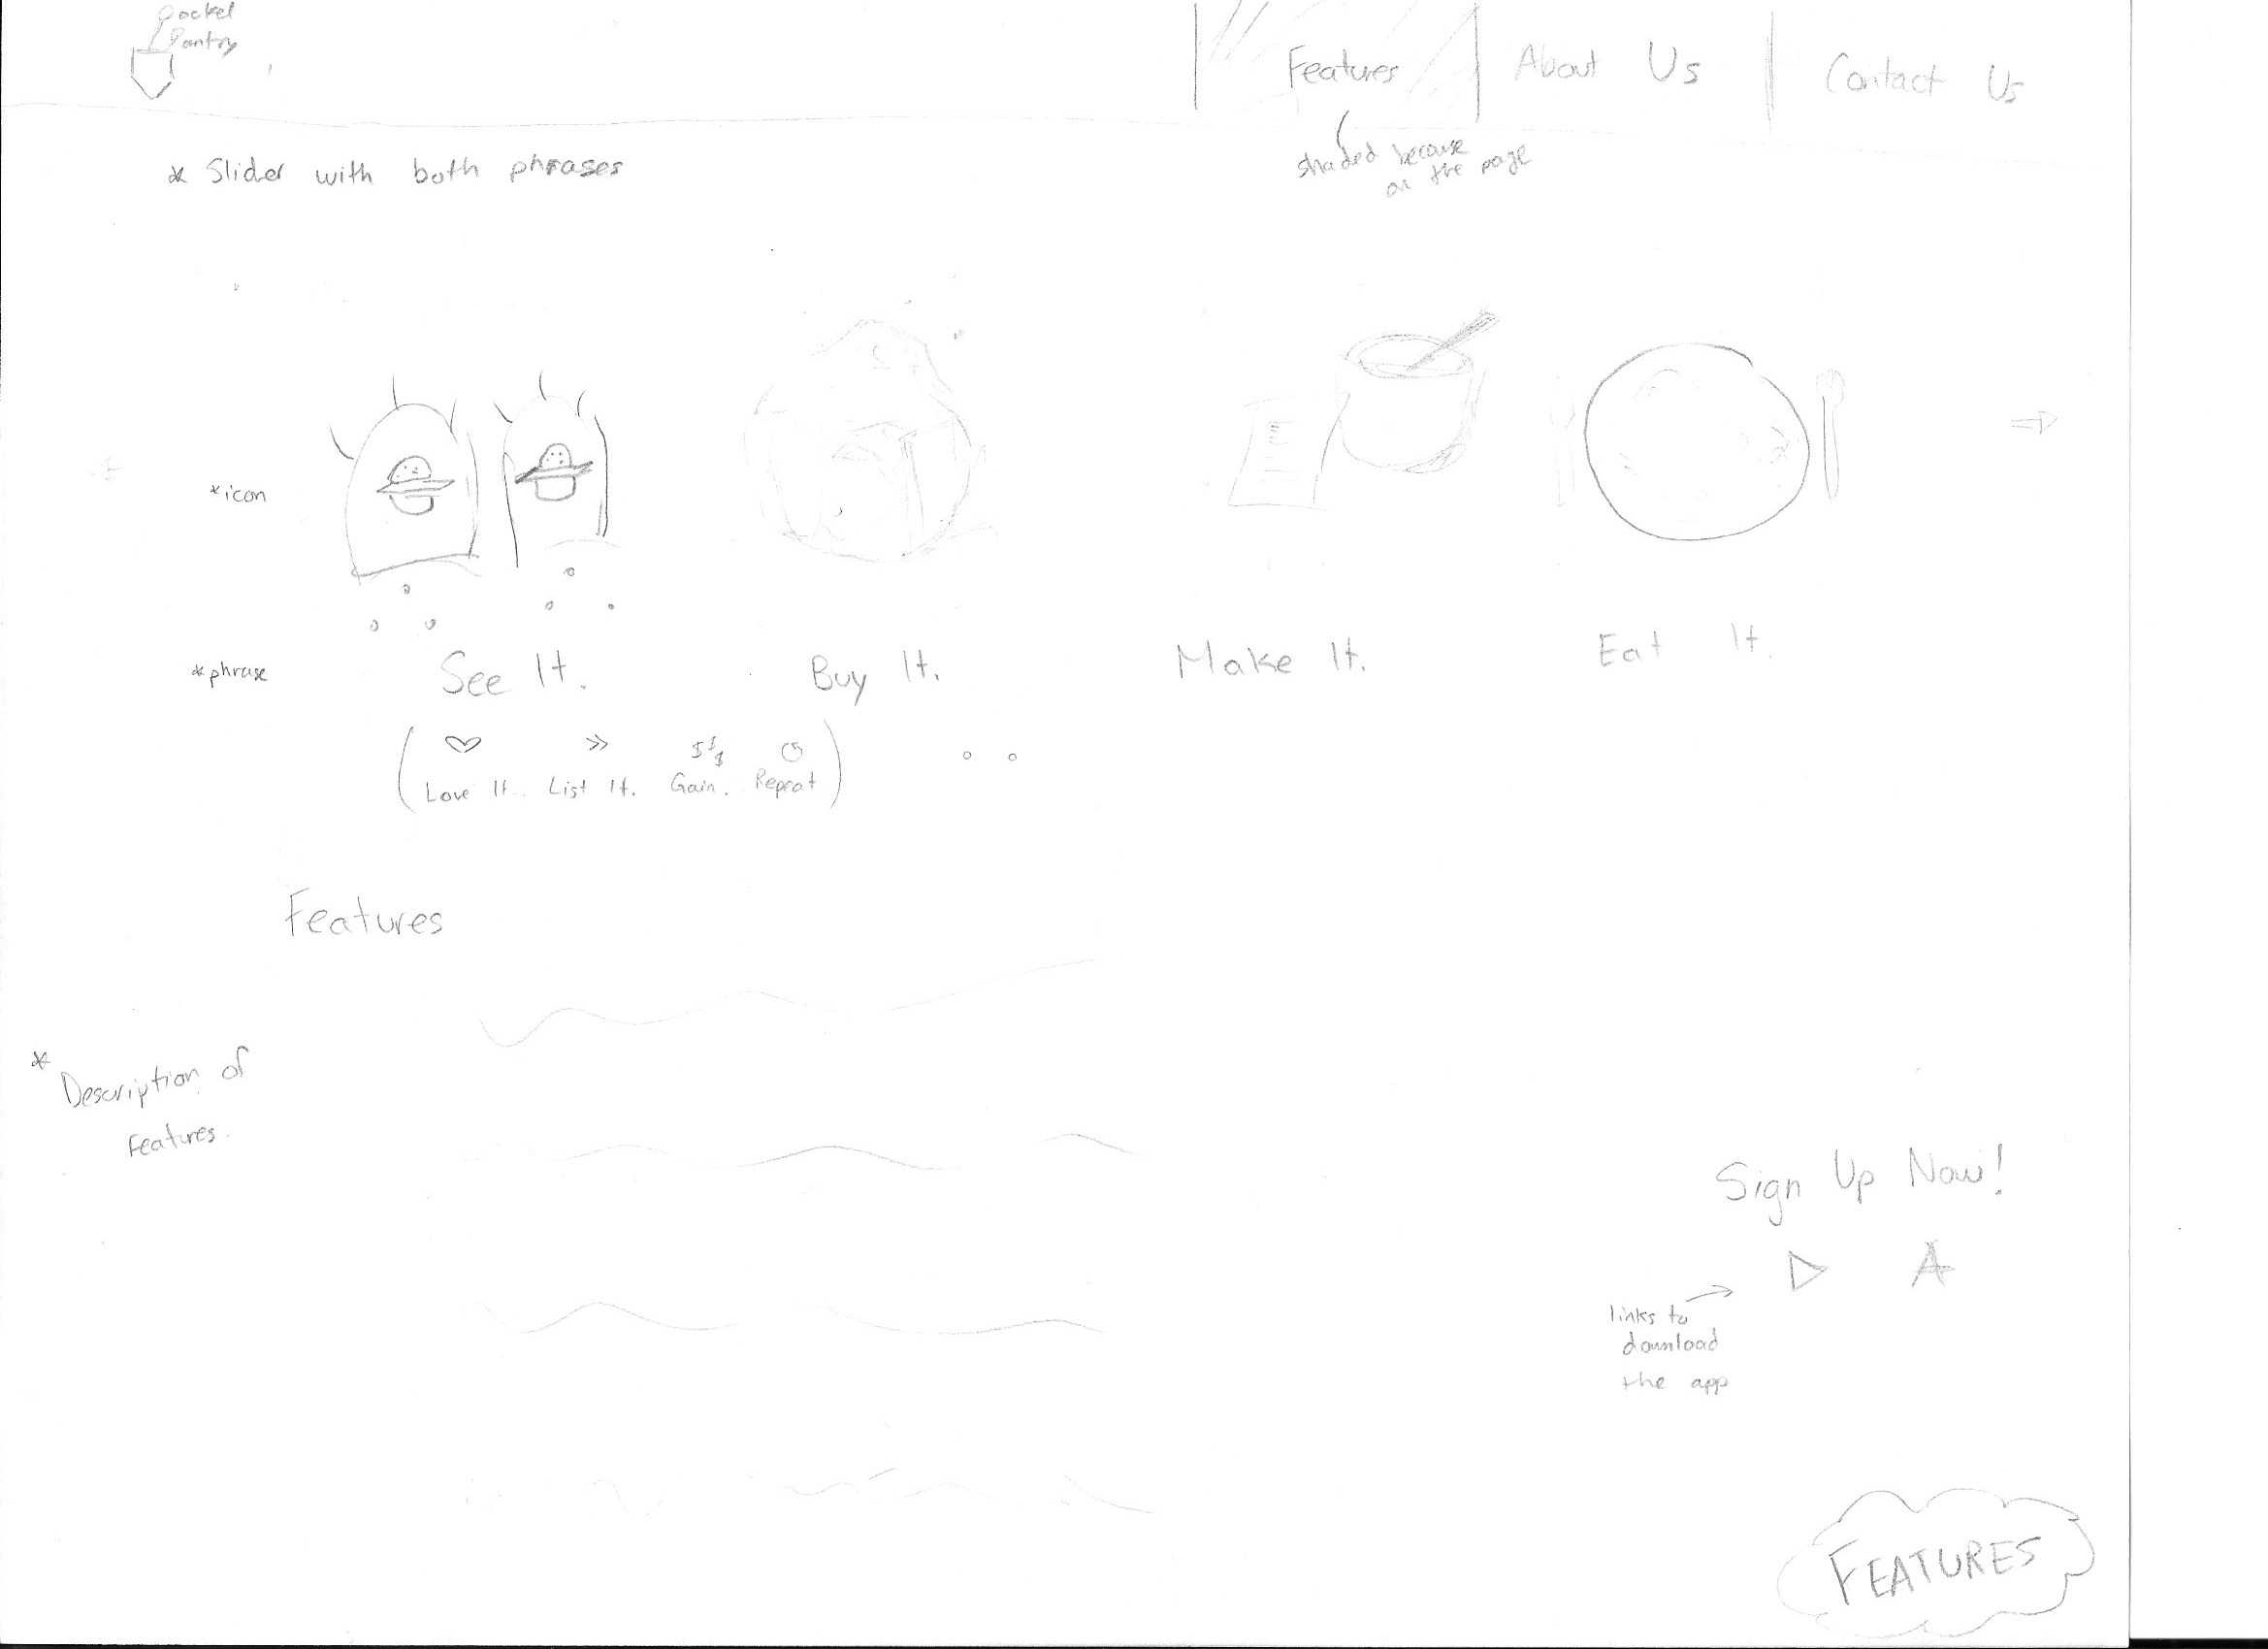 Pocket
Pantry
Features
About Us
Contact Us
shaded because
on the page
* Slider with both phrases
*icon
*phrase
See It.
Buy It.
Make It.
Eat It.
Love It. List It. Gain. Repeat
Features
* Description of
Features.
Sign Up Now!
links to
download
the app
FEATURES